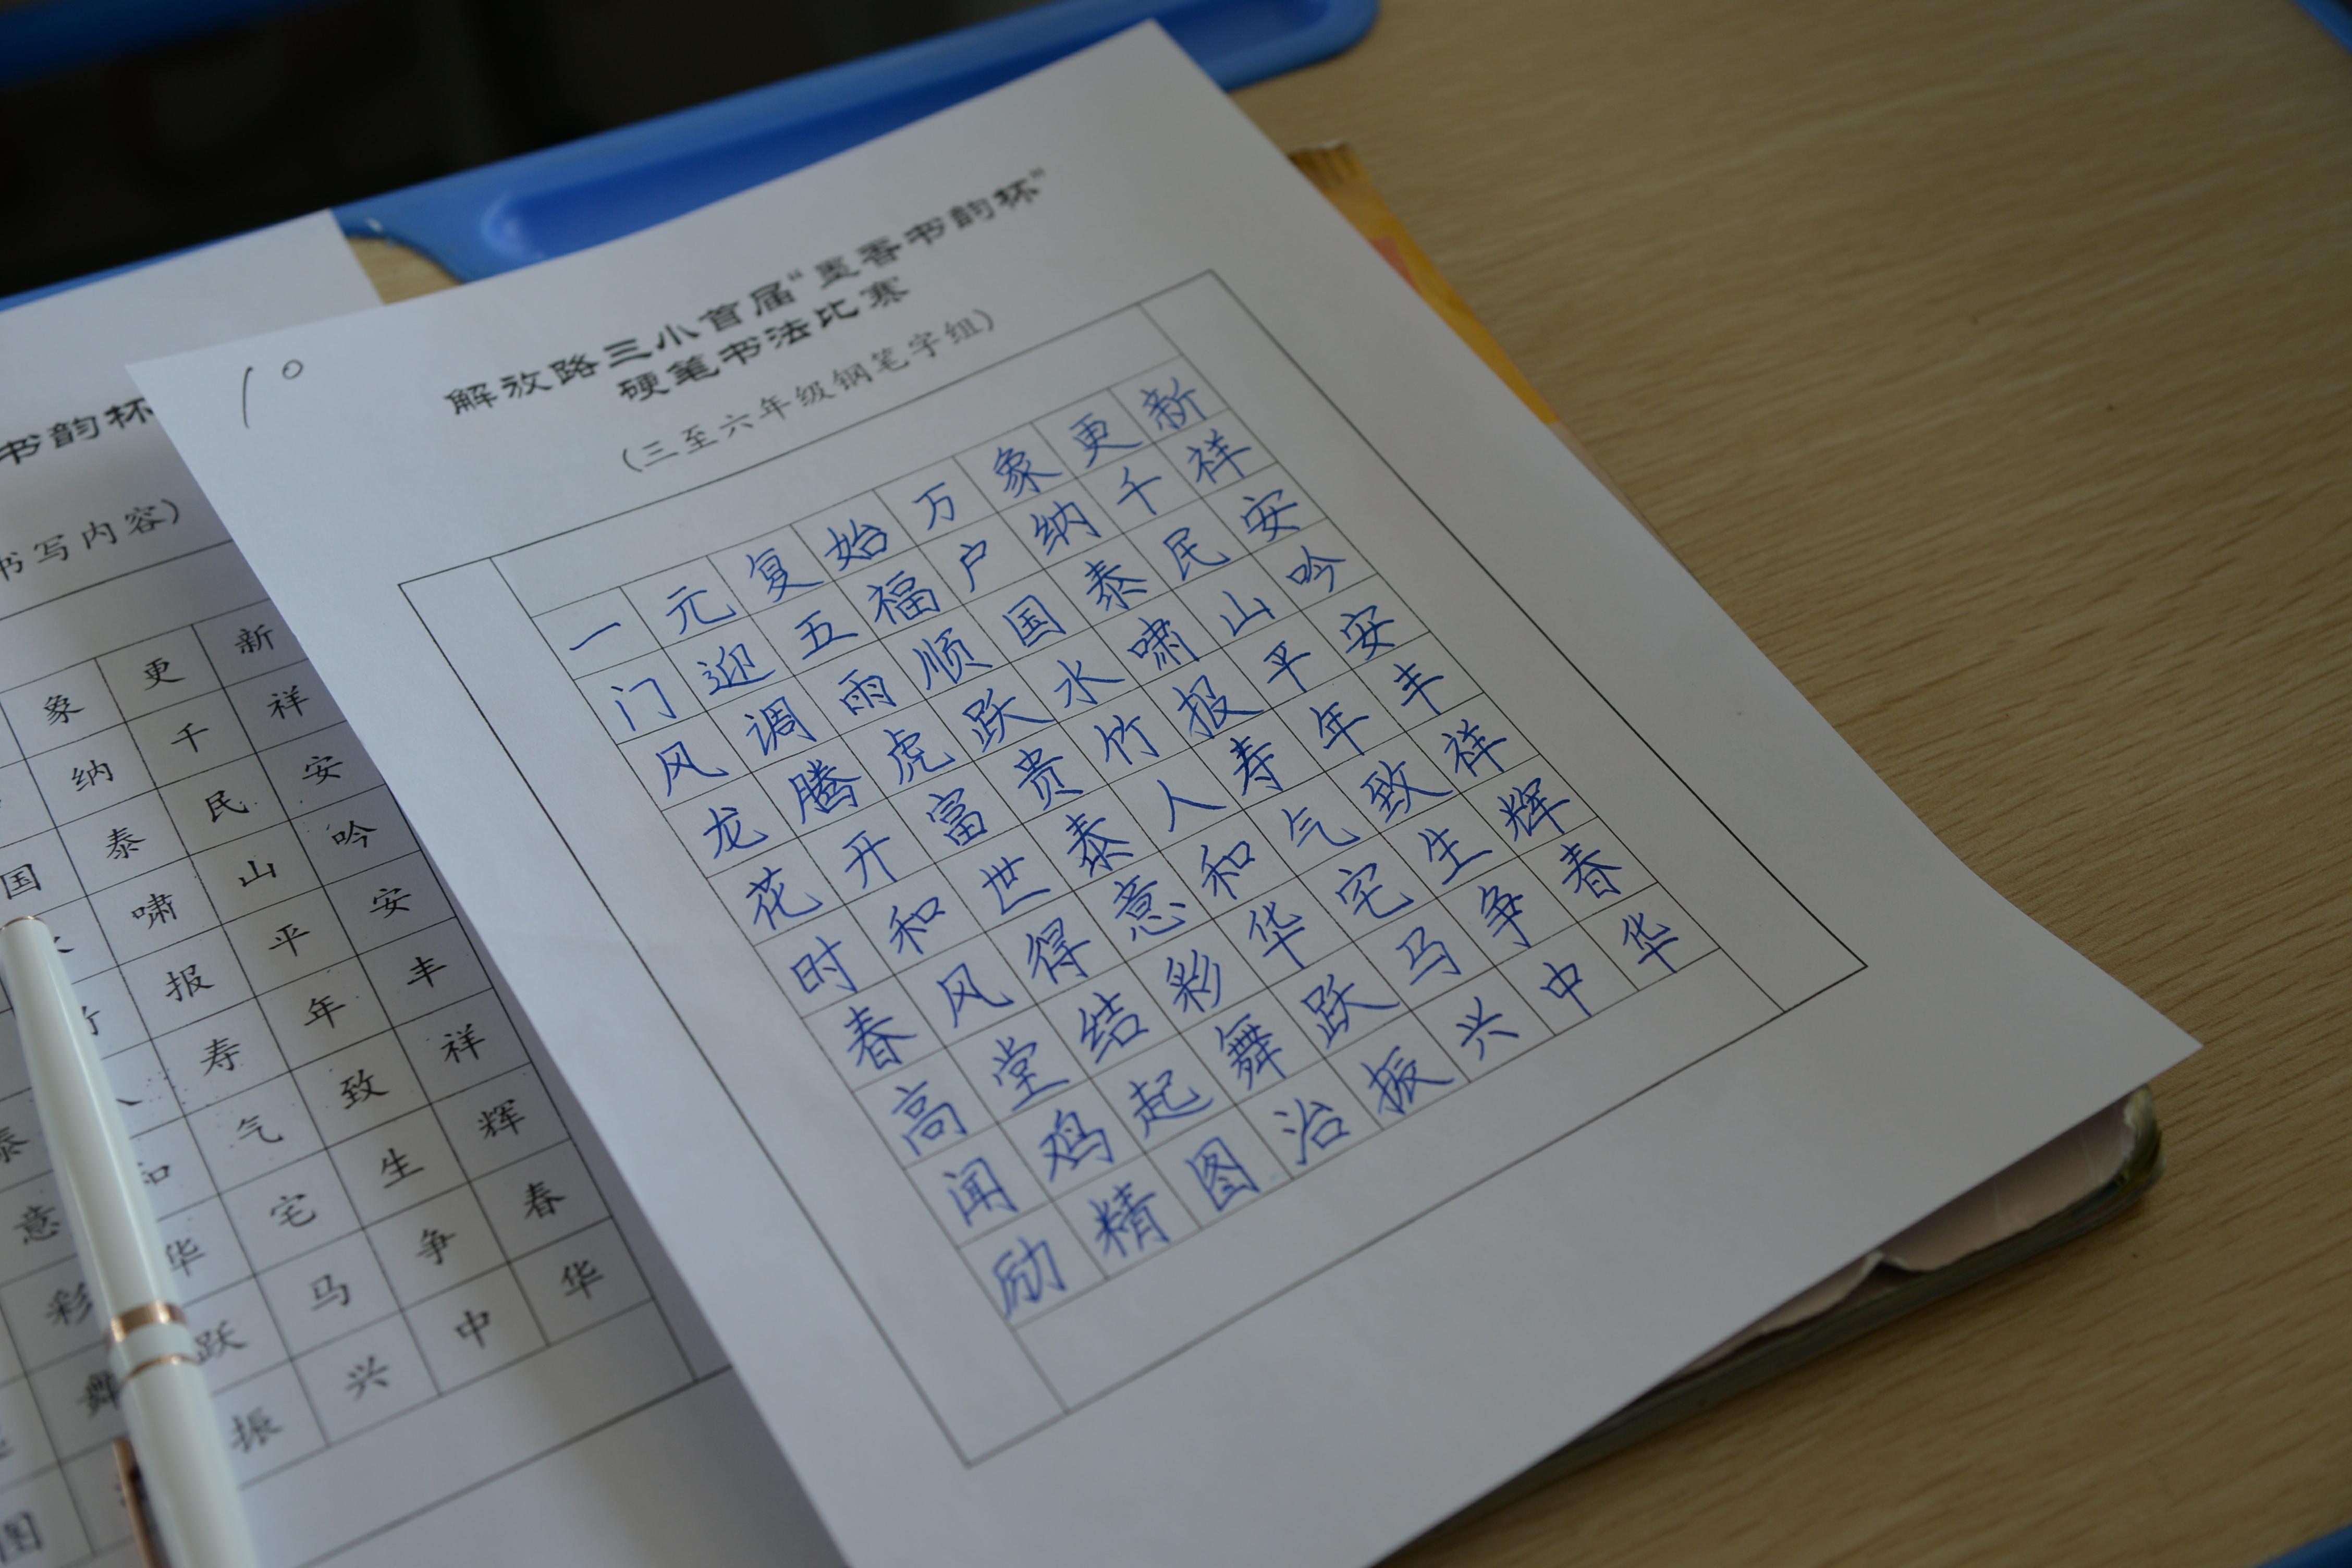 解放路三小首届“墨香书韵杯”
硬笔书法比赛
(三至六年级钢笔字组)
10
一元复始万象更新
门迎五福户纳千祥
风调雨顺国泰民安
龙腾虎跃水啸山吟
花开富贵竹报平安
时和世泰人寿年丰
春风得意和气致祥
高堂结彩华宅生辉
闻鸡起舞跃马争春
励精图治振兴中华
书韵杯
书写内容)
象更新
纳千祥
国泰民安
啸山吟
报平安
人寿年丰
泰和气致祥
意华宅生辉
彩跃马争春
舞振兴中华
图